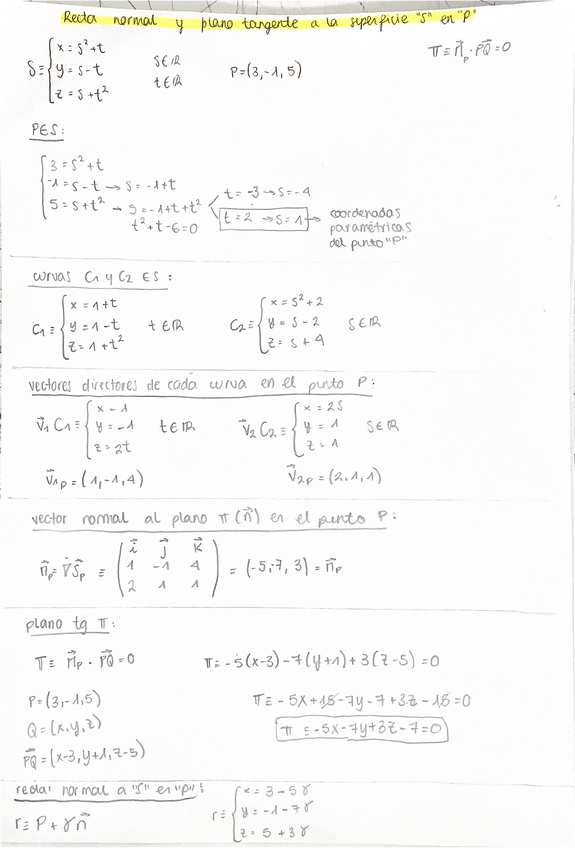 Recta normal y plano tangente a la superficie "S" en "P"
S≡ { x = s²+t
y = s-t
z = s+t²
s∈ℝ
t∈ℝ
P=(3,-1,5)
π≡ n⃗p · P⃗Q=0
P∈S:
3 = s²+t
-1 = s-t → s = -1+t
5 = s+t² → s = -1+t+t²
t²+t-6=0
t = -3 → s = -4
t = 2 → s = 1 → coordenadas
paramétricas
del punto "P"
curvas C1 y C2 ∈ S:
C1 ≡ { x = 1+t
y = 1-t
z = 1+t²
t∈ℝ
C2 ≡ { x = s²+2
y = s-2
z = s+4
s∈ℝ
vectores directores de cada curva en el punto P:
v⃗1 C1 ≡ { x - 1
y = -1
z = 2t
t∈ℝ
v⃗2 C2 ≡ { x = 2s
y = 1
z = 1
s∈ℝ
v⃗1p = (1,-1,4)
v⃗2p = (2,1,1)
vector normal al plano π (n⃗) en el punto P:
n⃗p = ∇⃗Sp ≡ ( i⃗ j⃗ k⃗
1 -1 4
2 1 1 ) = (-5,-7, 3) = n⃗p
plano tg π:
π≡ n⃗p · P⃗Q=0
π≡ -5(x-3)-7(y+1)+3(z-5)=0
P=(3,-1,5)
π≡ -5x+15-7y-7+3z-15=0
Q=(x,y,z)
π ≡ -5x-7y+3z-7=0
P⃗Q=(x-3,y+1,z-5)
recta: normal a "S" en "P":
r≡ P+γn⃗
r≡ { x = 3-5γ
y = -1-7γ
z = 5+3γ